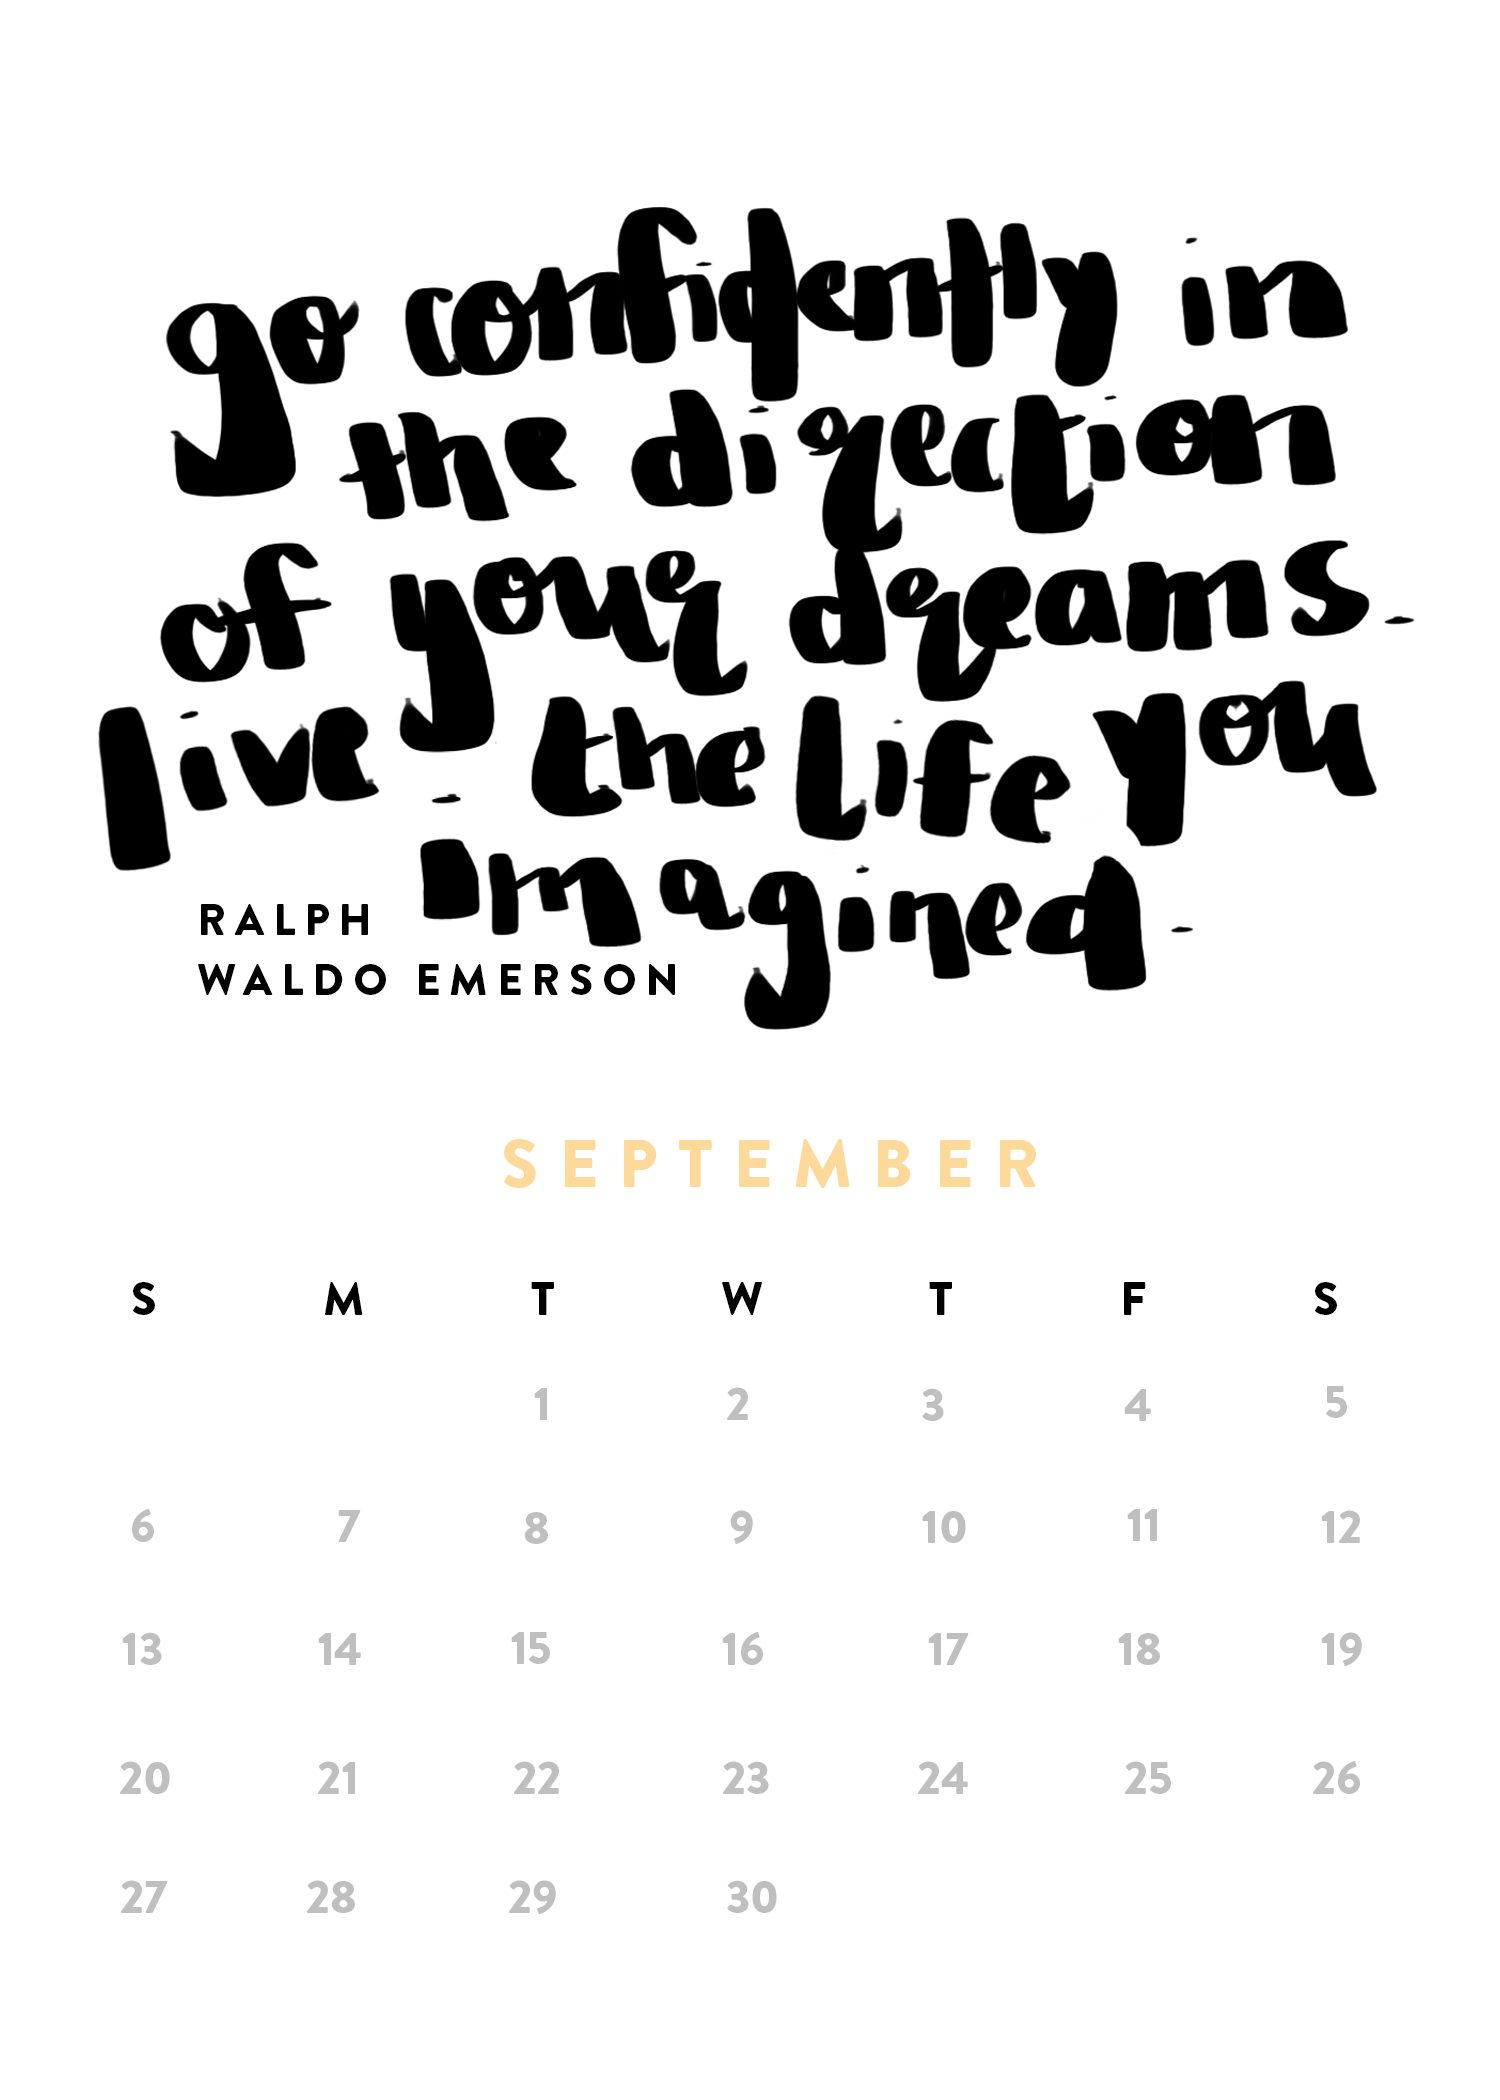 go confidently in
the direction
of your dreams.
live. the life you
imagined.
RALPH
WALDO EMERSON
SEPTEMBER
S M T W T F S
1 2 3 4 5
6 7 8 9 10 11 12
13 14 15 16 17 18 19
20 21 22 23 24 25 26
27 28 29 30